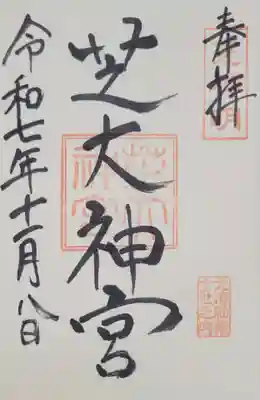 奉拝
芝大神宮
令和七年十一月八日